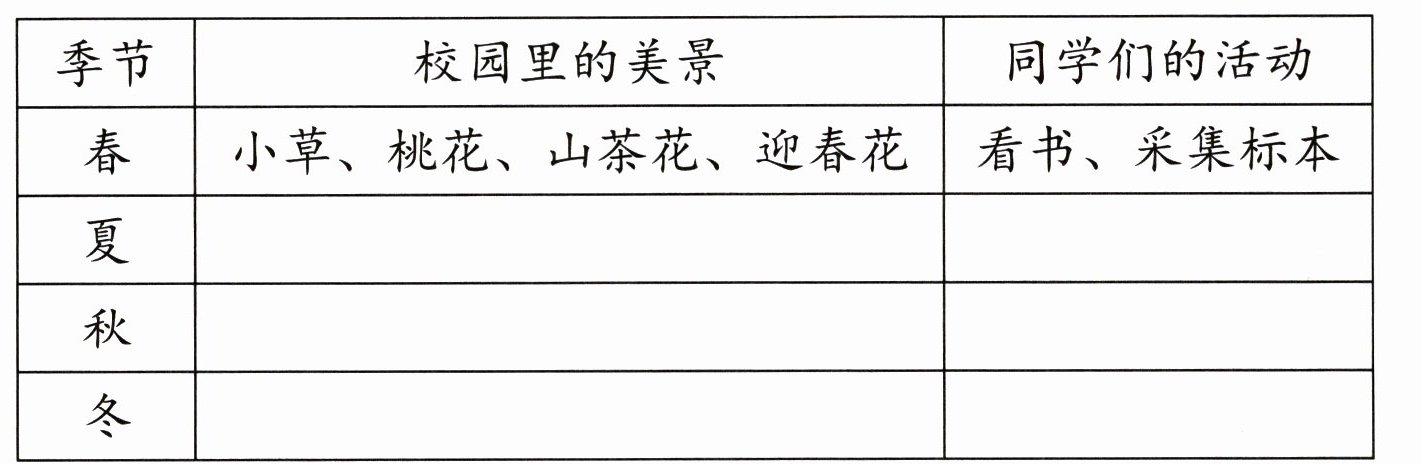 季节 校园里的美景 同学们的活动
春 小草、桃花、山茶花、迎春花 看书、采集标本
夏
秋
冬